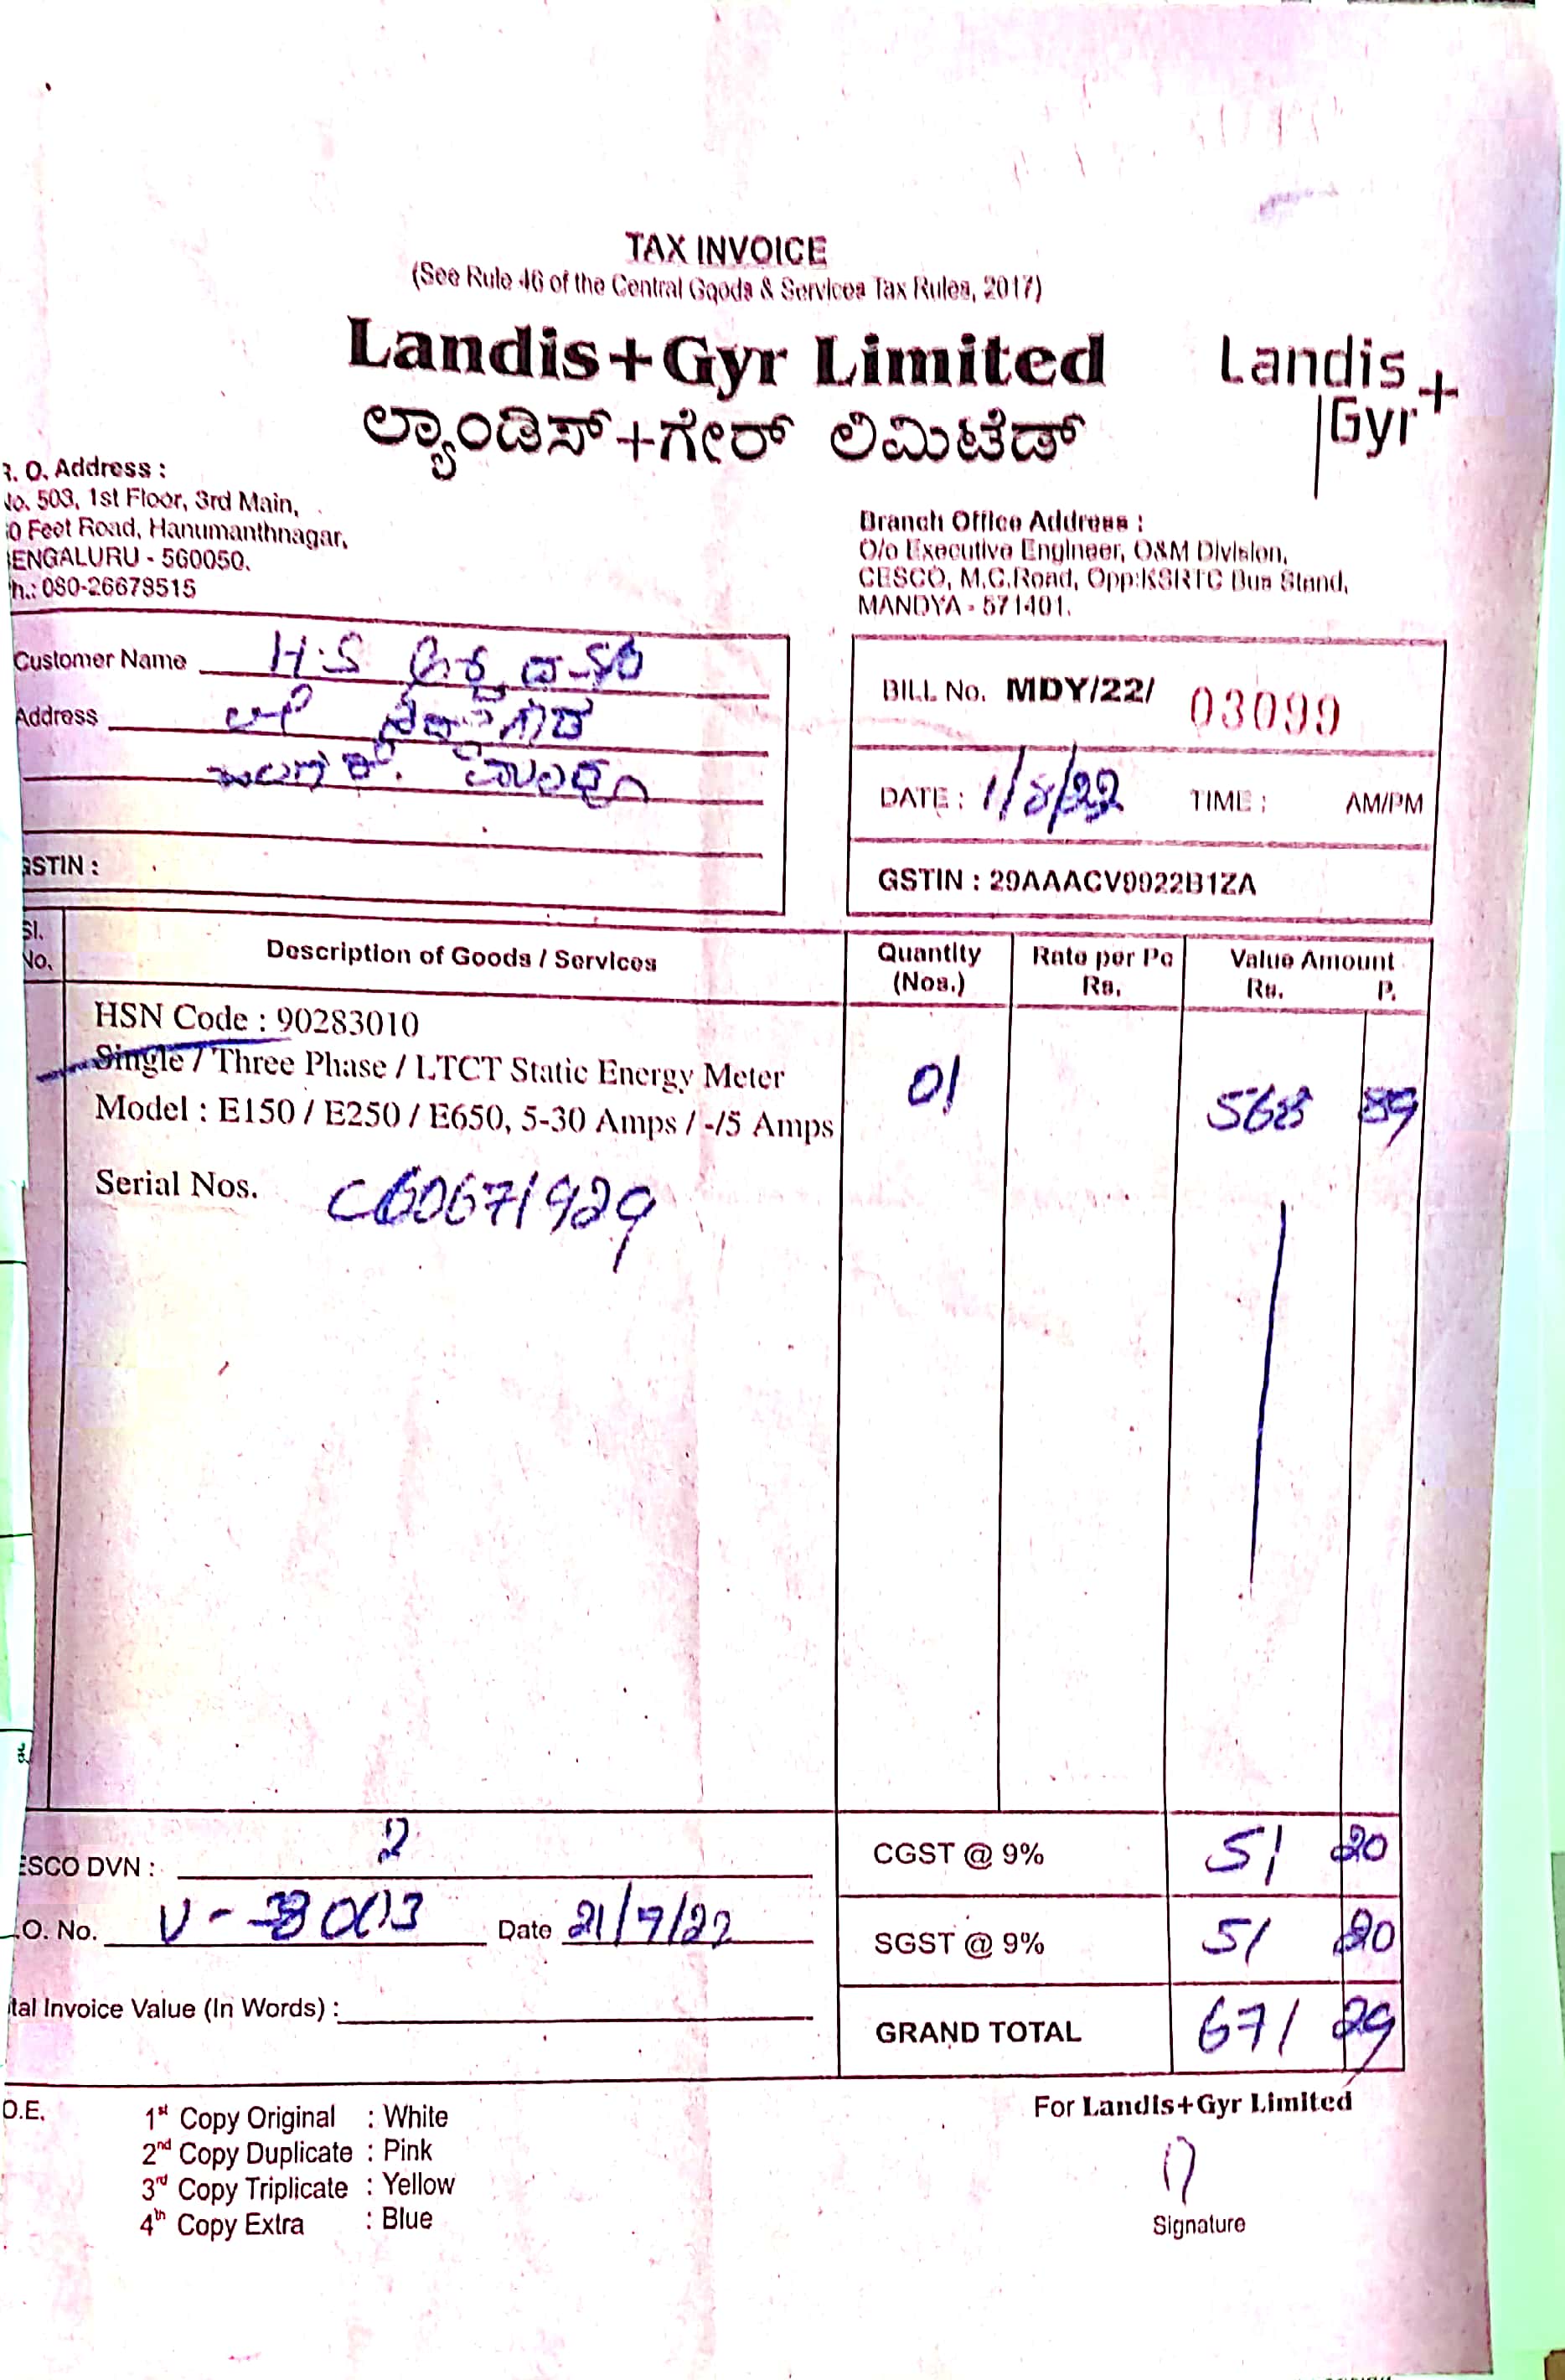 TAX INVOICE
(See Rule 46 of the Central Goods & Services Tax Rules, 2017)
Landis+Gyr Limited
ಲ್ಯಾಂಡಿಸ್+ಗೇರ್ ಲಿಮಿಟೆಡ್
Landis+
Gyr
. O. Address :
No. 503, 1st Floor, 3rd Main,
0 Feet Road, Hanumanthnagar,
ENGALURU - 560050.
h.: 080-26678515
Branch Office Address :
O/o Executive Engineer, O&M Division,
CESCO, M.C.Road, Opp:KSRTC Bus Stand,
MANDYA - 571401.
Customer Name H.S
Address
GSTIN :
BILL No. MDY/22/ 03099
DATE : 1/8/22 TIME : AM/PM
GSTIN : 29AAACV9922B1ZA
Sl. No. Description of Goods / Services Quantity (Nos.) Rate per Pc Rs. Value Amount Rs. P.
HSN Code : 90283010
Single / Three Phase / LTCT Static Energy Meter 01 568 89
Model : E150 / E250 / E650, 5-30 Amps / -/5 Amps
Serial Nos. C60671929
ESCO DVN : 2
CGST @ 9% 51 20
.O. No. Date 21/7/22
SGST @ 9% 51 20
tal Invoice Value (In Words) :
GRAND TOTAL 671 29
O.E.
1st Copy Original : White
2nd Copy Duplicate : Pink
3rd Copy Triplicate : Yellow
4th Copy Extra : Blue
For Landis+Gyr Limited
Signature